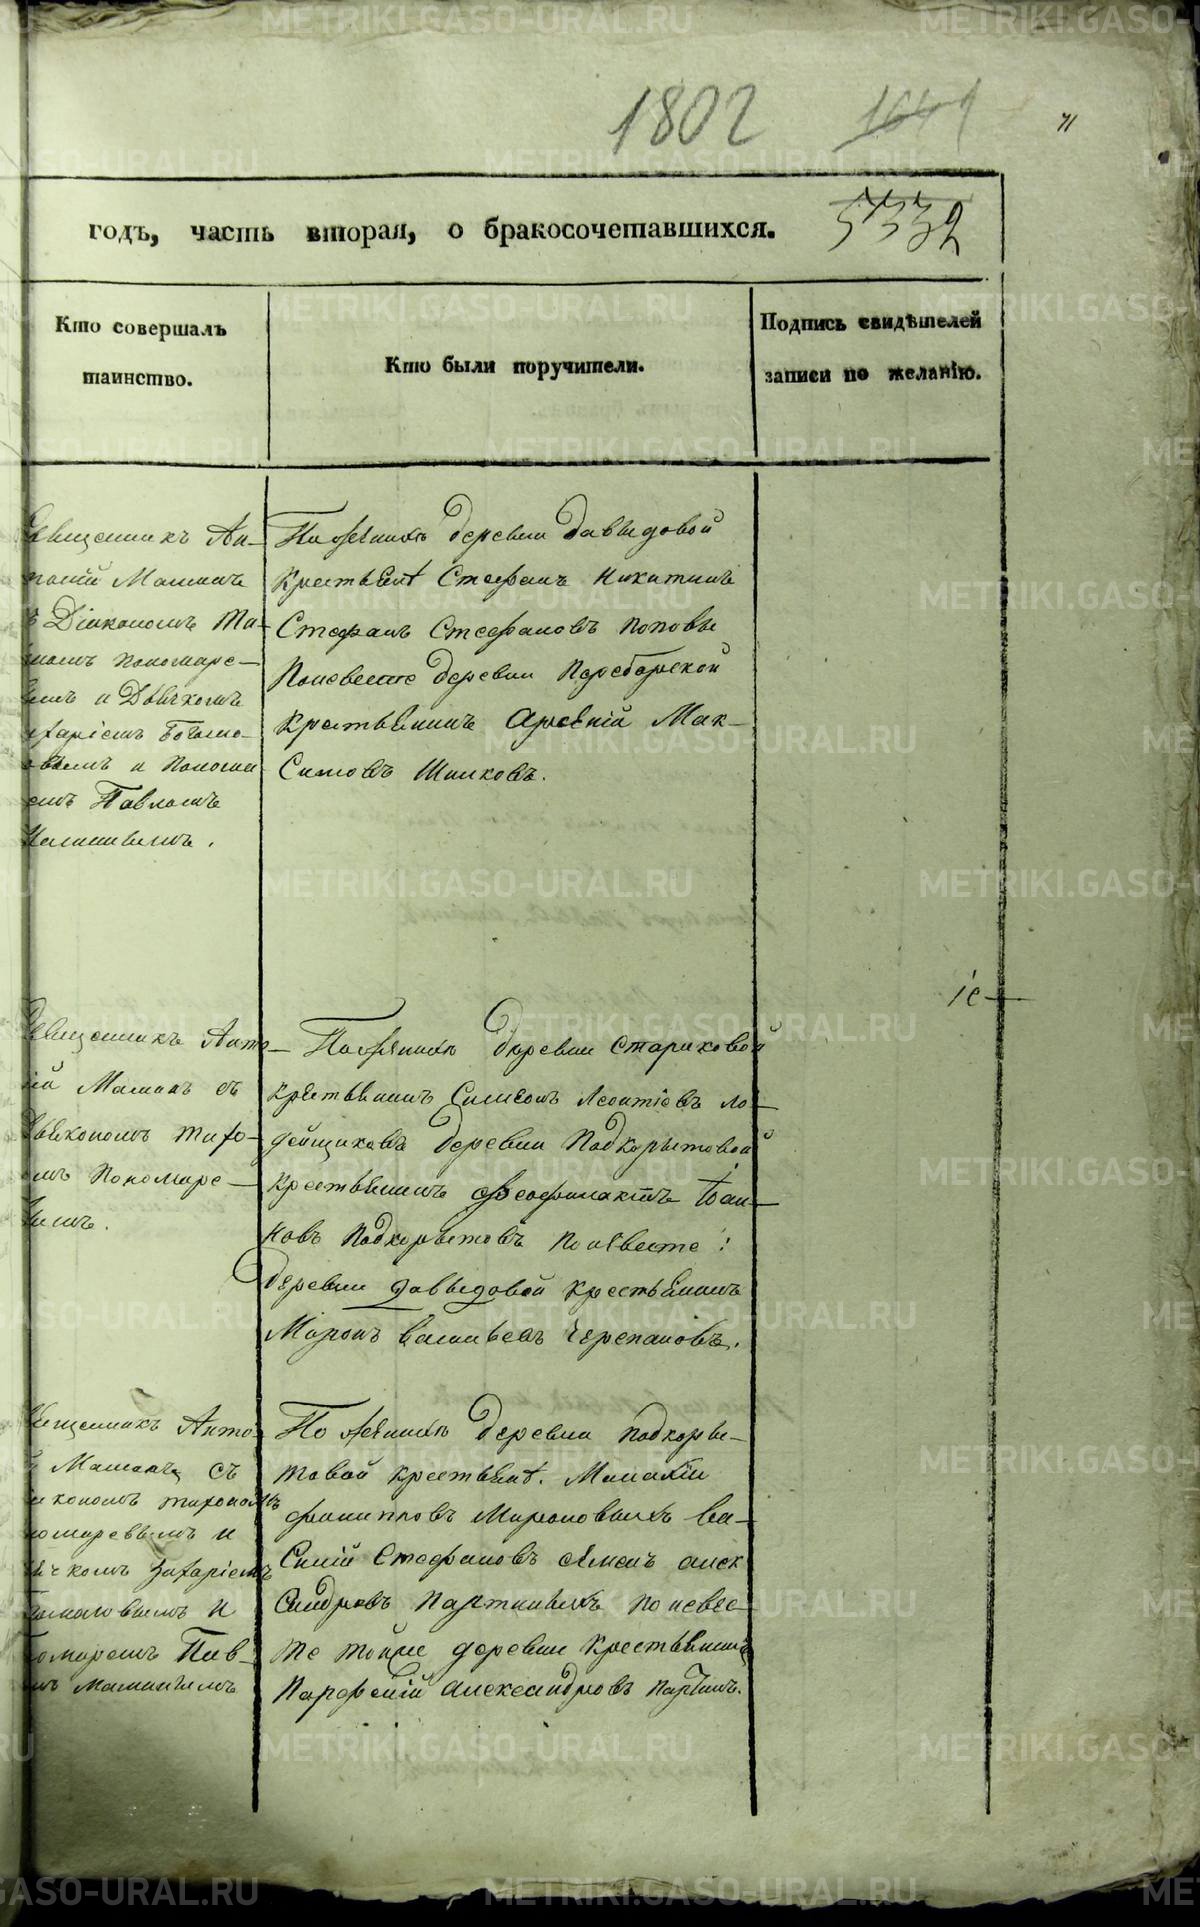 1802
71
годъ, часть вторая, о бракосочетавшихся.
5332
Кто совершалъ
таинство.
Кто были поручители.
Подпись свидѣтелей
записи по желанію.
Священникъ Ан-
тоній Маминъ
Діакономъ Ти-
Пономаре-
и Дьячкомъ
и Пономар
Павломъ
Маминымъ.
По женихѣ деревни Давыдовой
крестьяне Стефанъ Никитинъ
Стефанъ Стефановъ Поповы
По невесте деревни
крестьянинъ Арсеній Мак-
симовъ Шишковъ.
Священникъ Анто-
ній Маминъ съ
Дьякономъ Тихо-
номъ Пономаре-
вымъ.
По женихѣ деревни Стариковой
крестьянинъ Симеонъ Леонтіевъ Ло-
дейщиковъ деревни Подкорытовой
крестьянинъ Феофилактъ Іоан-
новъ Подкорытовъ по невесте
деревни Давыдовой крестьянинъ
Миронъ Васильевъ Черепановъ.
Священникъ Анто-
Маминъ съ
Тихономъ
Пономаревымъ и
Дьячкомъ Захаріемъ
и
Пономаремъ Пав-
Маминымъ
По женихѣ деревни Подкоры-
товой крестьяне
Филипповъ Мироновыхъ Ва-
силій Стефановъ Семенъ Алек
сандровъ Партины по невес-
те тойже деревни крестьянинъ
Парфеній Александровъ Партинъ.
METRIKI.GASO-URAL.RU